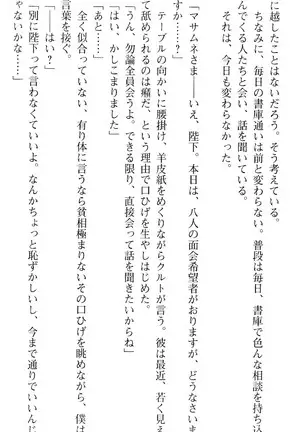 に越したことはないだろう。そう考えている。
ちなみに、毎日の書庫通いは前と変わらない。普段は毎日、書庫で色んな相談を持ち込
んでくる人たちと会い、話を聞いている。
それは、今日も変わらなかった。
「マサムネさま――いえ、陛下。本日は、八人の面会希望者がおりますが、どうなさいま
すか？」
テーブルの向かいに腰掛け、羊皮紙をめくりながらクルトが言う。彼は最近、若く見え
て舐められるのは癪だ、という理由で口ひげを生やしはじめた。
「うん、勿論全員会うよ。できる限り、直接会って話を聞きたいからね」
「はい、かしこまりました」
「あと……」
全く似合っていない、有り体に言うなら貧相極まりないその口ひげを眺めながら、僕は
言葉を接ぐ。
「――はい？」
「別に陛下って言わなくていいよ。なんかちょっと恥ずかしいし、今まで通りでいいんじ
ゃないかな……」